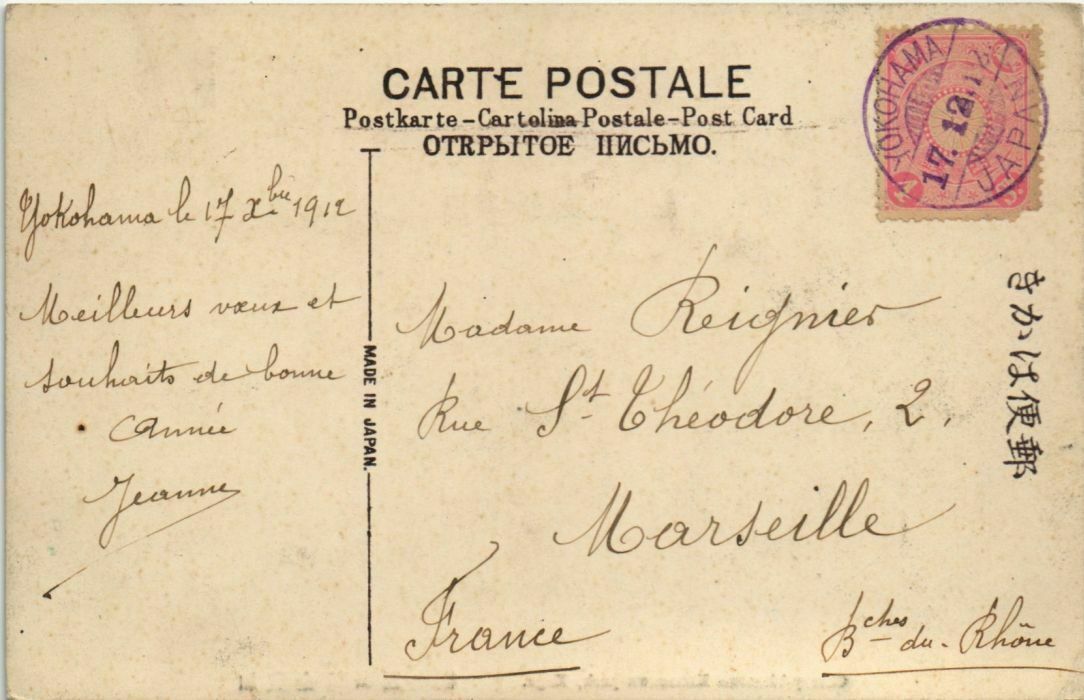 CARTE POSTALE
Postkarte–Cartolina Postale–Post Card
ОТКРЫТОЕ ПИСЬМО.
YOKOHAMA
17.12.12
JAPAN
Yokohama le 17 Xbre 1912
Meilleurs vœux et
souhaits de bonne
Année
Jeanne
MADE IN JAPAN.
Madame Reignier
Rue St. Théodore, 2.
Marseille
France
Bches du-Rhône
きかは便郵